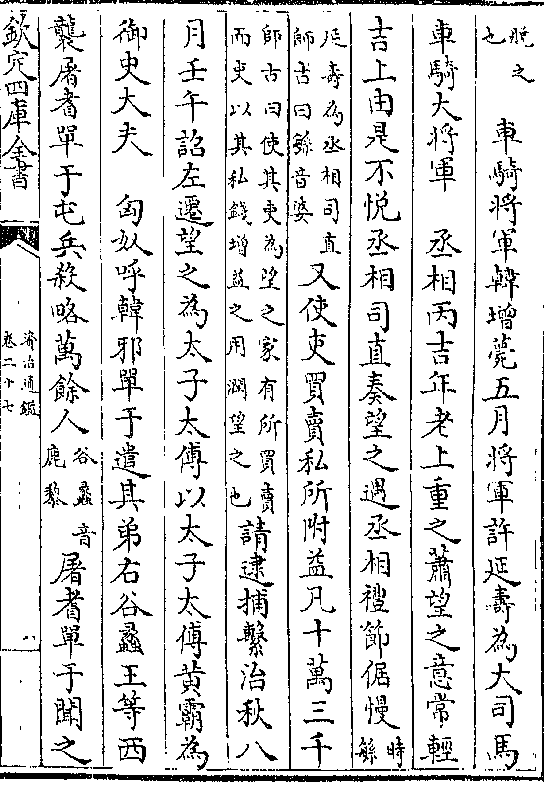 脱之
也
車騎將軍韓增薨五月將軍許延壽為大司馬
車騎大將軍　丞相丙吉年老上重之蕭望之意常輕
吉上由是不悦丞相司直奏望之遇丞相禮節倨慢時
緐
延壽為丞相司直
師古曰緐音婆
又使吏買賣私所附益凡十萬三千
師古曰使其吏為望之家有所買賣
而吏以其私錢增益之用潤望之也
請逮捕繫治秋八
月壬午詔左遷望之為太子太傅以太子太傅黄霸為
御史大夫　匈奴呼韓邪單于遣其弟右谷蠡王等西
襲屠耆單于屯兵殺略萬餘人
谷蠡音
鹿黎
屠耆單于聞之
欽定四庫全書
資治通鑑
卷二十七
八